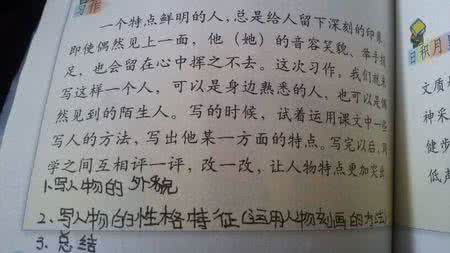 习作
一个特点鲜明的人，总是给人留下深刻的印象，
即使偶然见上一面，他（她）的音容笑貌、举手投
足，也会留在心中挥之不去。这次习作，我们就来
写这样一个人，可以是身边熟悉的人，也可以是偶
然见到的陌生人。写的时候，试着运用课文中一些
写人的方法，写出他某一方面的特点。写完以后，同
学之间互相评一评，改一改，让人物特点更加突出
1.写人物的外貌
2、写人物的性格特征（运用人物刻画的方法）
3.总结
日积月
文质
神采
健步
低声